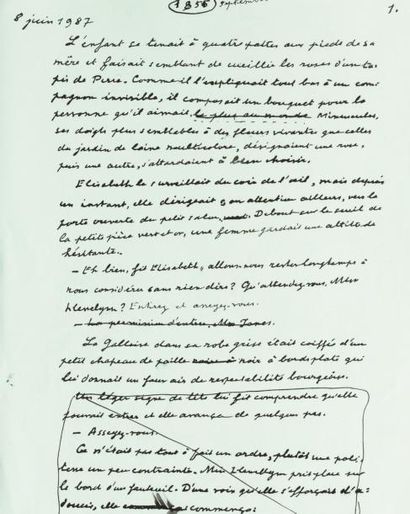 1856 septembre
8 juin 1987 1.
L'enfant se tenait à quatre pattes aux pieds de sa
mère et faisait semblant de cueillir les roses d'un ta-
pis de Perse. Comme il l'expliquait tout bas à un com-
pagnon invisible, il composait un bouquet pour la
personne qu'il aimait le plus au monde Minuscules,
ses doigts plus semblables à des fleurs vivantes que celles
du jardin de laine multicolore, désignaient une rose,
puis une autre, s'attardaient à bien choisir.
Elisabeth le surveillait du coin de l'œil, mais depuis
un instant, elle dirigeait son attention ailleurs, vers la
porte ouverte du petit salon. Debout sur le seuil de
la petite pièce vert et or, une femme gardait une attitude
hésitante.
– Eh bien, fit Elisabeth, allons-nous rester longtemps à
nous considérer sans rien dire? Qu'attendez-vous, Miss
Llewelyn? Entrez et asseyez-vous.
– La permission d'entrer, Mrs Jones.
La Galloise dans sa robe grise était coiffée d'un
petit chapeau de paille noire à noir à bords plats qui
lui donnait un faux air de respectabilité bourgeoise.
Un léger signe de tête lui fit comprendre qu'elle
pouvait entrer et elle avança de quelques pas.
– Asseyez-vous.
Ce n'était pas tout à fait un ordre, plutôt une poli-
tesse un peu contrainte. Miss Llewelyn prit place sur
le bord d'un fauteuil. D'une voix qu'elle s'efforçait d'a-
doucir, elle commença: